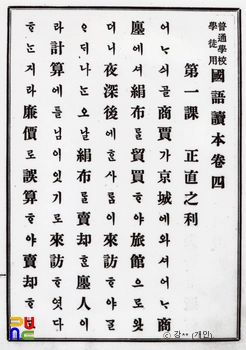 普通學校
學徒用
國語讀本卷四
第一課 正直之利
어ᄂᆞ싀골商賈가京城에와셔어ᄂᆞ商
廛에셔絹布를貿買ᄒᆞ야旅館으로왓
더니夜深後에ᄒᆞᆫ사ᄅᆞᆷ이來訪ᄒᆞ야ᄀᆞᆯ
ᄋᆞ되나ᄂᆞᆫ오ᄂᆞᆯ絹布를賣却ᄒᆞᆫ廛人이
라計算에틀님이잇기로來訪ᄒᆞ엿다
ᄒᆞᄂᆞᆫ지라廉價로誤算ᄒᆞ야賣却ᄒᆞ
ⓒ 강** (개인)